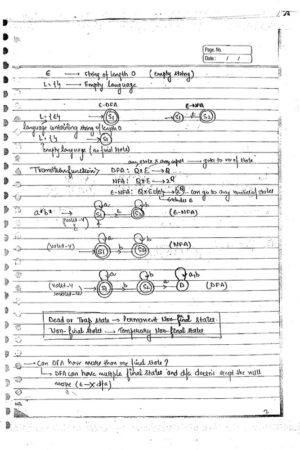 Page No.
Date: / /
ϵ → string of length 0 (empty string)
L = { } → Empty language
ϵ-DFA ϵ-NFA
L = {ϵ} → S1 S1 ϵ S2
language containing string of length 0
L = { } → S1
Empty language (no final state)
any state & any input → goto to no of state
Transition function> DFA: Q×Σ → Q
NFA: Q×Σ → 2^Q
ϵ-NFA: Q×Σ → 2^Q can go to any number of states
includes ϵ
a b
a*b* → S1 ϵ S2 (ϵ-NFA)
a b
→ S1 b S2 (NFA)
a b a,b
→ S1 b S2 a D (DFA)
Dead or Trap state → Permanent Non-final states.
Non-final states → Temporary Non-final states
→ Can DFA have more than one final state?
→ DFA can have multiple final states and dfa doesn't accept the null
move (ϵ-X dfa)
2